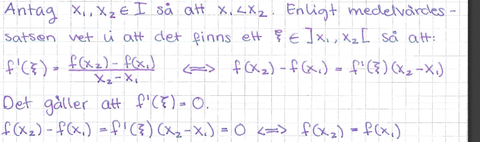 Antag x₁, x₂ ∈ I så att x₁ < x₂. Enligt medelvärdes-
satsen vet vi att det finns ett ξ ∈ ]x₁, x₂[ så att:
f'(ξ) = (f(x₂) - f(x₁))/(x₂ - x₁) <=> f(x₂) - f(x₁) = f'(ξ)(x₂ - x₁)
Det gäller att f'(ξ) = 0.
f(x₂) - f(x₁) = f'(ξ)(x₂ - x₁) = 0 <=> f(x₂) = f(x₁)